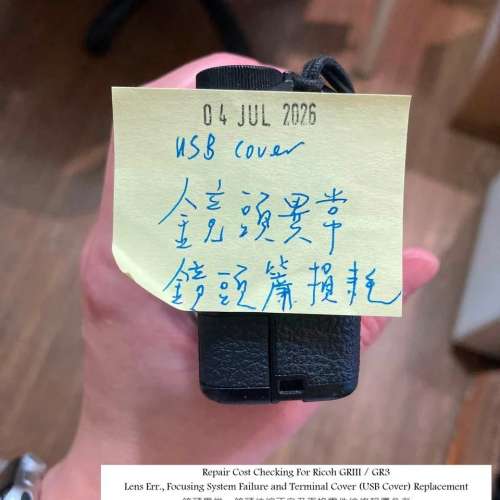 04 JUL 2026
USB cover
鏡頭異常
鏡頭簾損耗
Repair Cost Checking For Ricoh GRIII / GR3
Lens Err., Focusing System Failure and Terminal Cover (USB Cover) Replacement